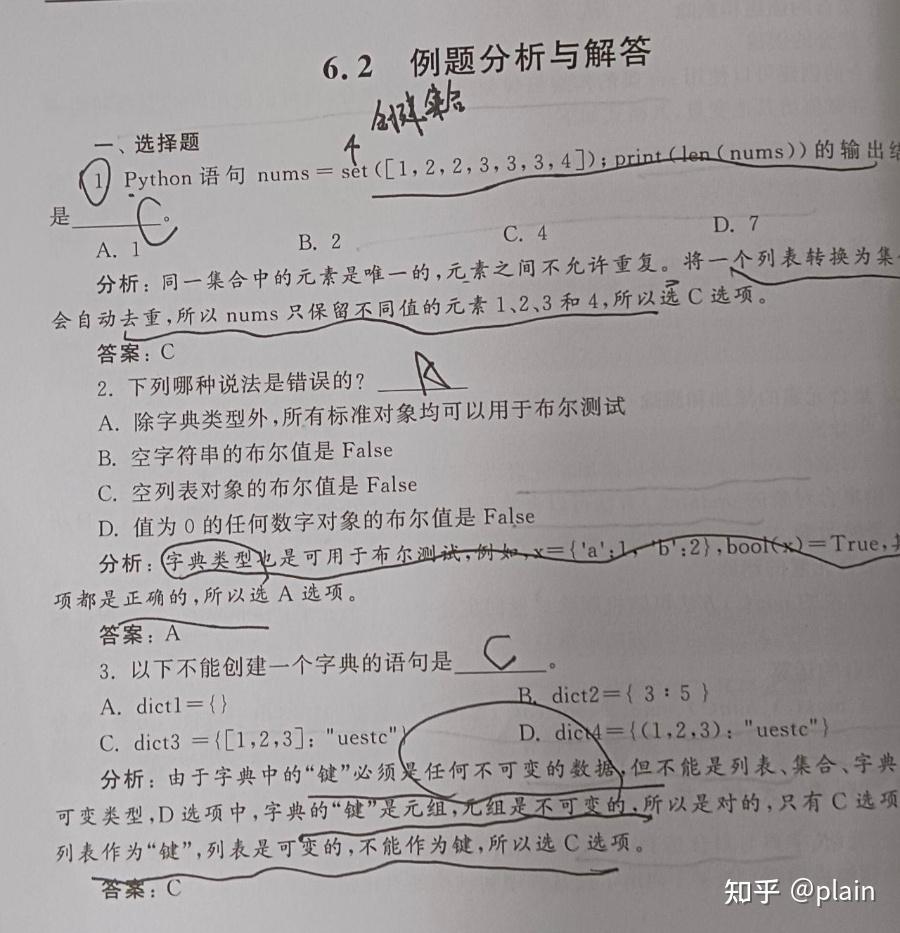 6.2 例题分析与解答
创建集合
一、选择题
4
1 Python 语句 nums = set([1,2,2,3,3,3,4]);print(len(nums))的输出结
是 C 。
A. 1 B. 2 C. 4 D. 7
分析:同一集合中的元素是唯一的,元素之间不允许重复。将一个列表转换为集
会自动去重,所以 nums 只保留不同值的元素 1、2、3 和 4,所以选 C 选项。
答案:C
2. 下列哪种说法是错误的? A
A. 除字典类型外,所有标准对象均可以用于布尔测试
B. 空字符串的布尔值是 False
C. 空列表对象的布尔值是 False
D. 值为 0 的任何数字对象的布尔值是 False
分析:字典类型也是可用于布尔测试,例如,x={'a':1, 'b':2},bool(x)=True,其
项都是正确的,所以选 A 选项。
答案:A
3. 以下不能创建一个字典的语句是 C 。
A. dict1={} B. dict2={ 3:5 }
C. dict3 ={[1,2,3]:"uestc"} D. dict4={(1,2,3):"uestc"}
分析:由于字典中的“键”必须是任何不可变的数据,但不能是列表、集合、字典
可变类型,D 选项中,字典的“键”是元组,元组是不可变的,所以是对的,只有 C 选项
列表作为“键”,列表是可变的,不能作为键,所以选 C 选项。
答案:C
知乎 @plain